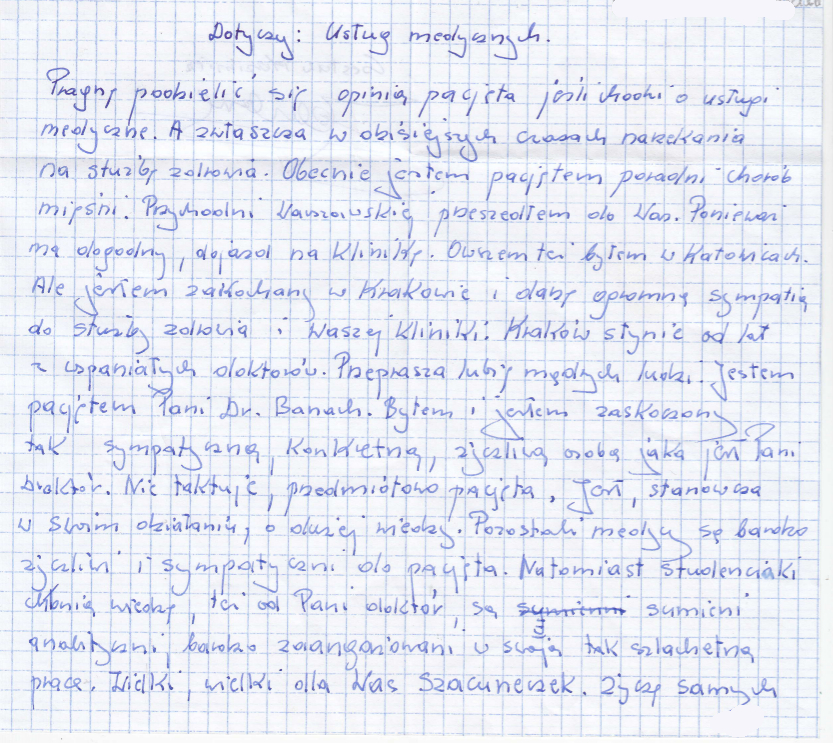 Dotyczy: Usług medycznych.
Pragnę podzielić się opinią pacjęta jeśli chodzi o usługi
medyczne. A zwłaszcza w dzisiejszych czasach narzekania
na służbę zdrowia. Obecnie jestem pacjętem poradni chorób
mięśni. Przychodni Warszawskię przeszedłem do Was. Ponieważ
ma dogodny, dojazd na Klinikę. Owszem też byłem w Katowicach.
Ale jestem zakochany w Krakowie i dażę ogromną sympatią
do służby zdrowia i Waszej Kliniki. Kraków słynie od lat
z wspaniałych doktorów. Przeprasza lubię mądrych ludzi. Jestem
pacjętem Pani Dr. Banach. Byłem i jestem zaskoczony
tak sympatyczną, konkretną, życzliwą osobą jaką jest Pani
Doktór. Nie taktuje, przedmiotowo pacjęta, jest, stanowcza
w swoim działaniu, o dużej wiedzy. Pozostali medycy są bardzo
życzliwi i sympatyczni do pacjęta. Natomiast studenciaki
chłonią wiedzę, też od Pani doktór, są sumieni
analityczni, bardzo zaangorzowani w swoją tak szlachetną
pracę. Wielki, wielki dla Was Szacuneczek. Życzę samych